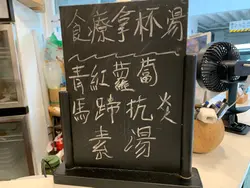 食療拿杯湯
青紅蘿蔔
馬蹄抗炎
素湯